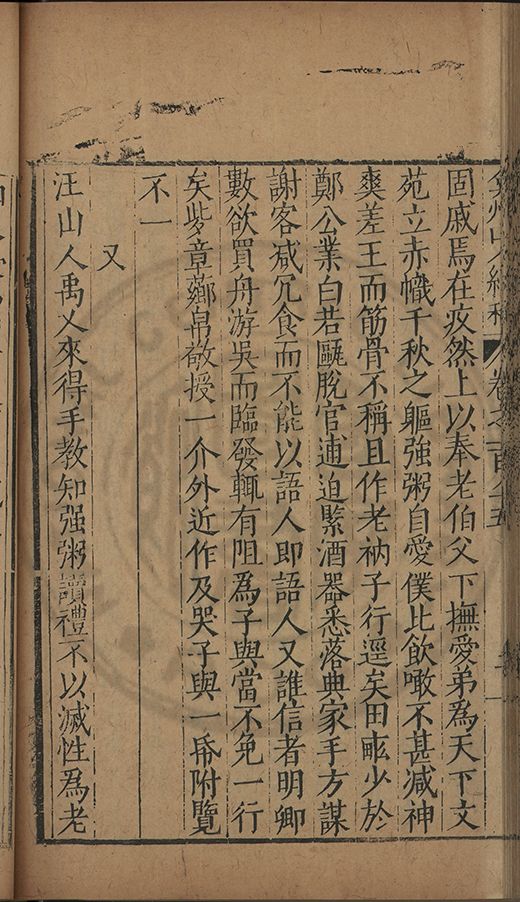 固戚焉在疚然上以奉老伯父下撫愛弟爲天下文
苑立赤幟千秋之軀強粥自愛僕比飲噉不甚减神
爽差王而筋骨不稱且作老衲子行逕矣田畝少於
鄭公業白若甌脫官逋迫縣酒器悉落典家手方謀
謝客减冗食而不能以語人即語人又誰信者明卿
數欲買舟游吳而臨發輒有阻爲子與當不免一行
矣紫章薌帛敬授一介外近作及哭子與一帋附覽
不一
又
汪山人禹乂來得手教知强粥讀禮不以滅性爲老